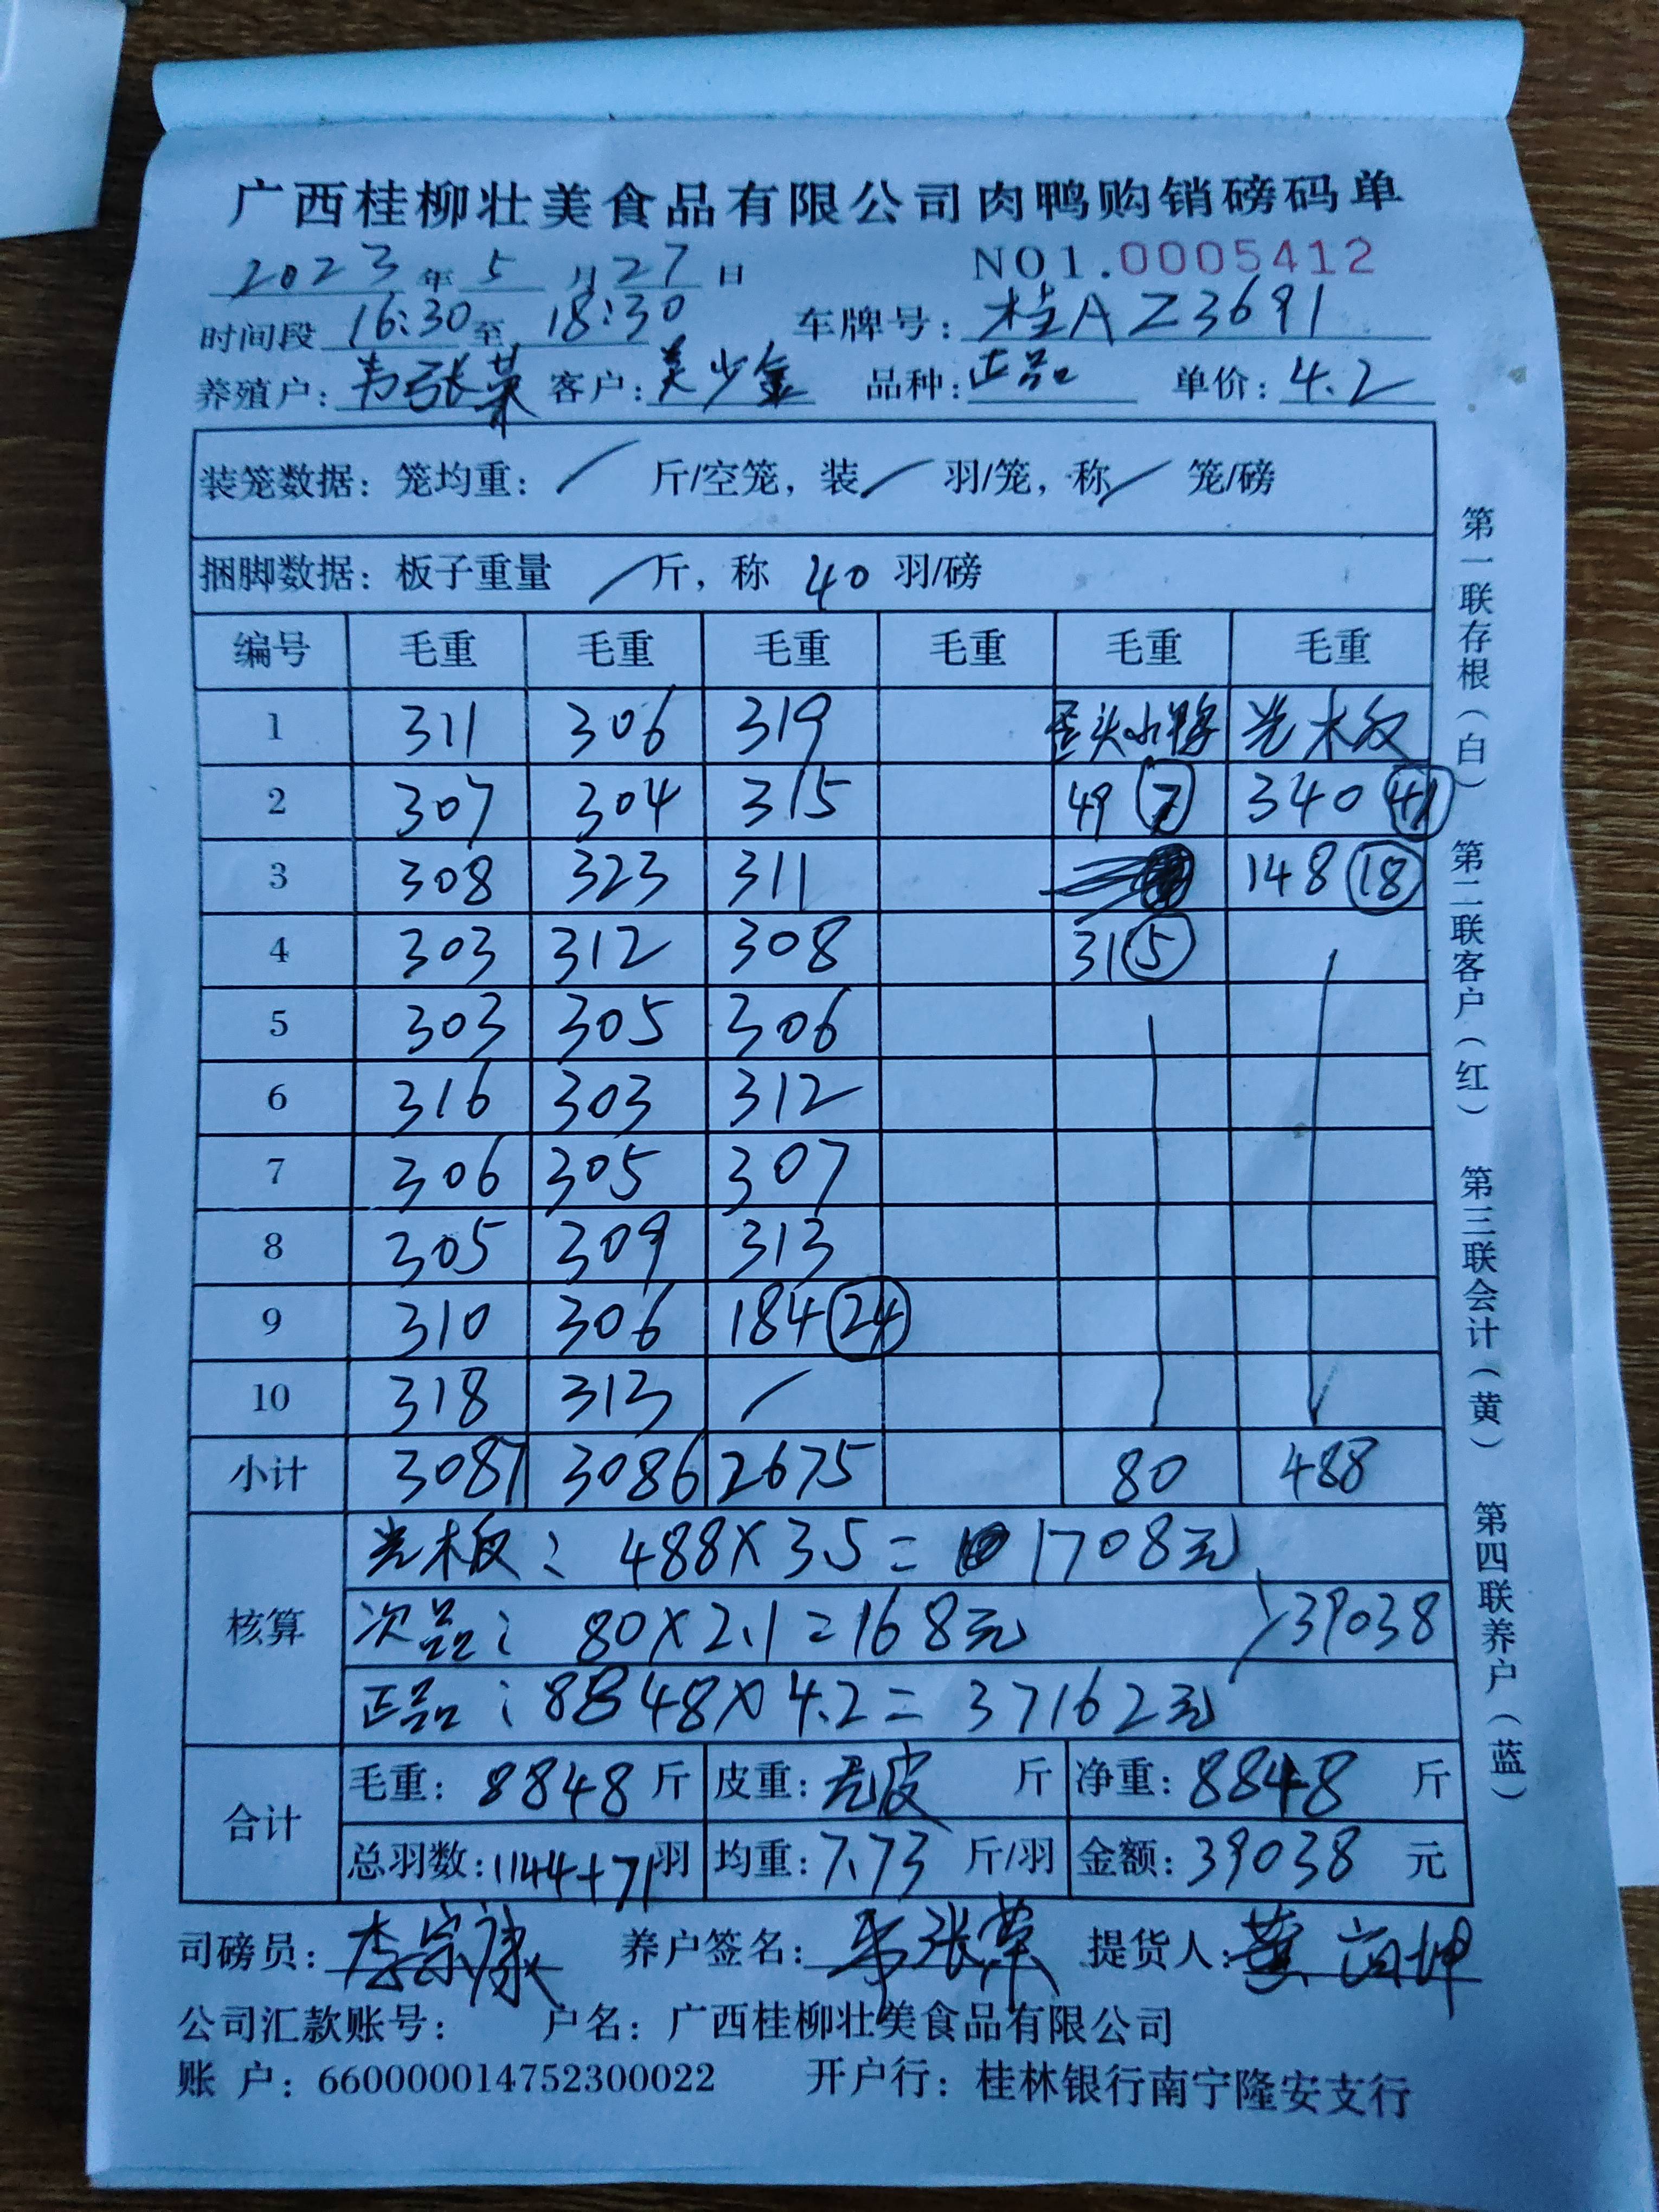 广西桂柳壮美食品有限公司肉鸭购销磅码单
2023年5月27日 NO1.0005412
时间段 16:30至 18:30 车牌号：桂AZ3691
养殖户：韦张荣 客户：美少金 品种：正品 单价：4.2
装笼数据：笼均重： / 斤/空笼，装 / 羽/笼，称 / 笼/磅
捆脚数据：板子重量 / 斤，称 40 羽/磅
编号 毛重 毛重 毛重 毛重 毛重 毛重
1 311 306 319 歪头小鸭 光木板
2 307 304 315 49 7 340 41
3 308 323 311 148 18
4 303 312 308 31 5
5 303 305 306
6 316 303 312
7 306 305 307
8 305 309 313
9 310 306 184 24
10 318 313 /
小计 3087 3086 2675 80 488
核算
光木板：488×3.5=1708元
次品：80×2.1=168元 39038
正品：8848×4.2=37162元
合计
毛重：8848斤 皮重：无皮 斤 净重：8848 斤
总羽数：1144+71羽 均重：7.73 斤/羽 金额：39038 元
司磅员：李宗康 养户签名：韦张荣 提货人：黄
公司汇款账号： 户名：广西桂柳壮美食品有限公司
账 户：660000014752300022 开户行：桂林银行南宁隆安支行
第一联存根（白） 第二联客户（红） 第三联会计（黄） 第四联养户（蓝）